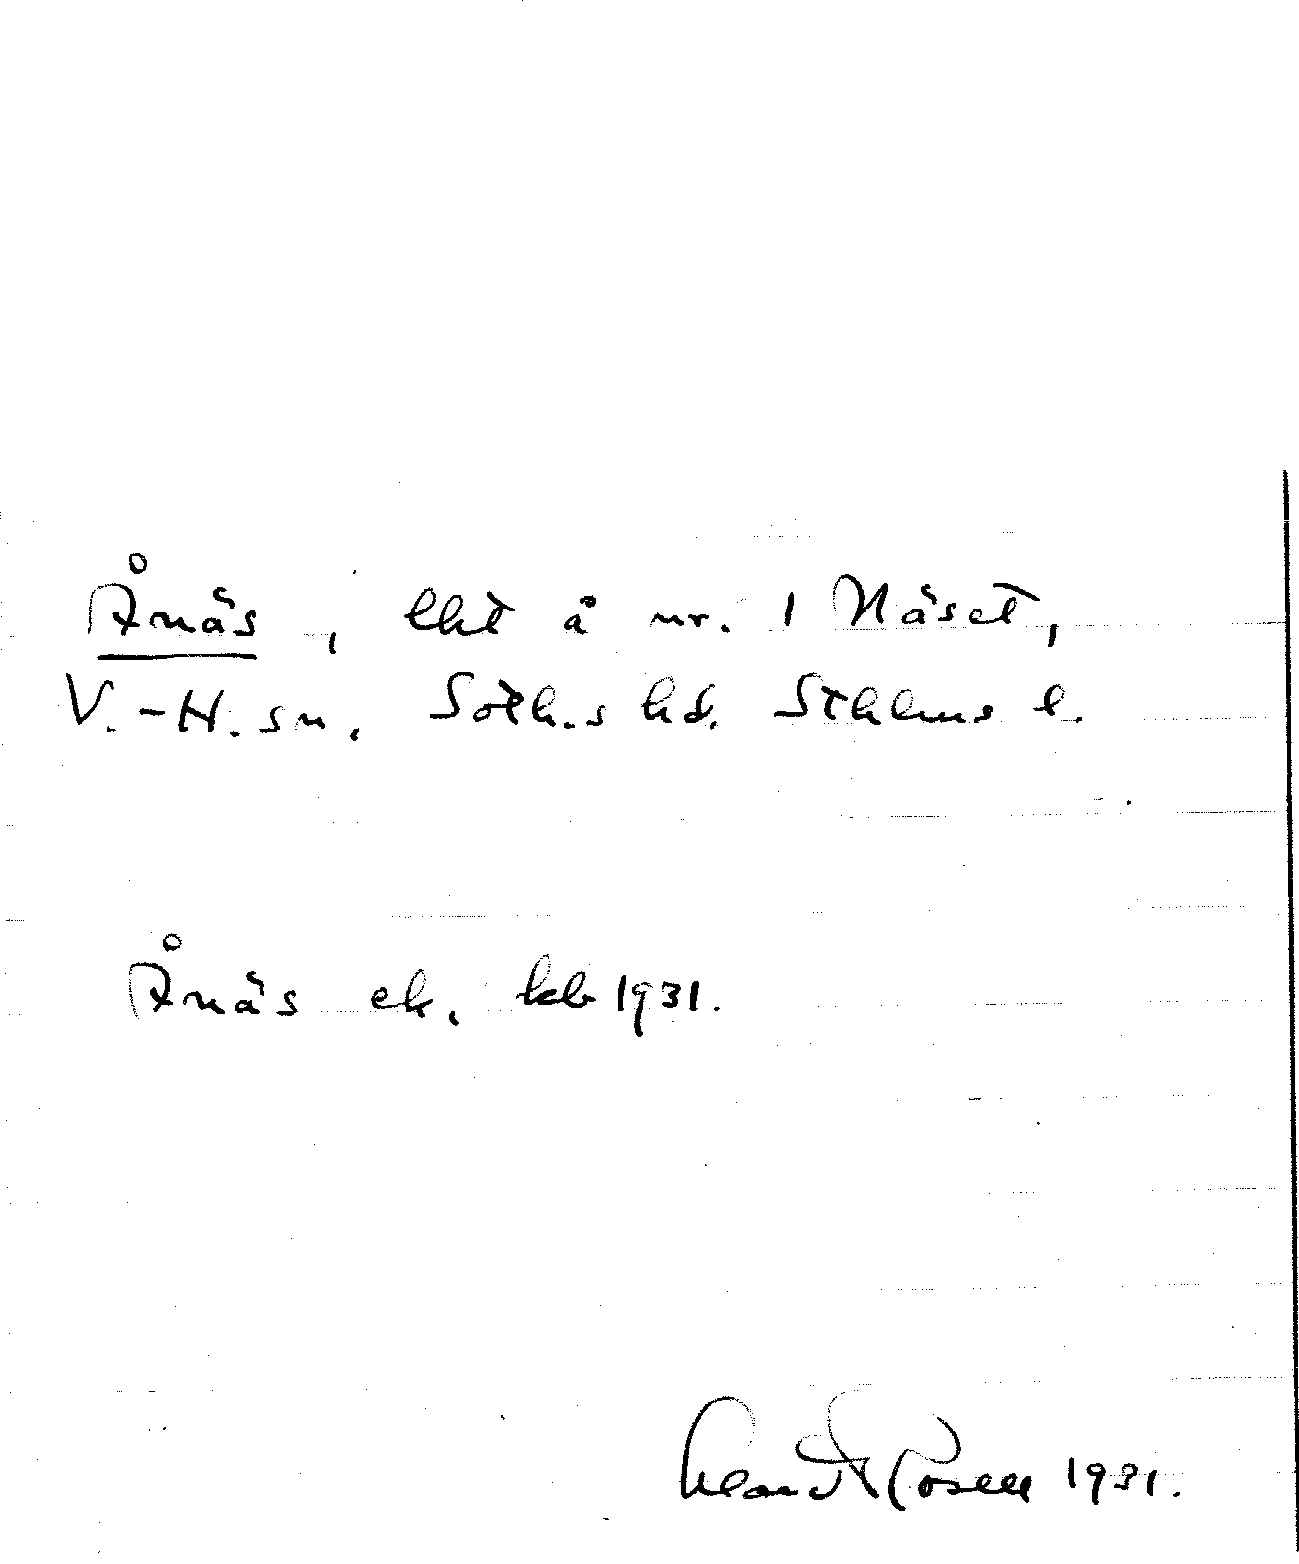 Ånäs, lht å nr. 1 Näset,
V.-H. sn. Soth.s hd. Sthlms l.
Ånäs ek. kb 1931.
Rosell 1931.